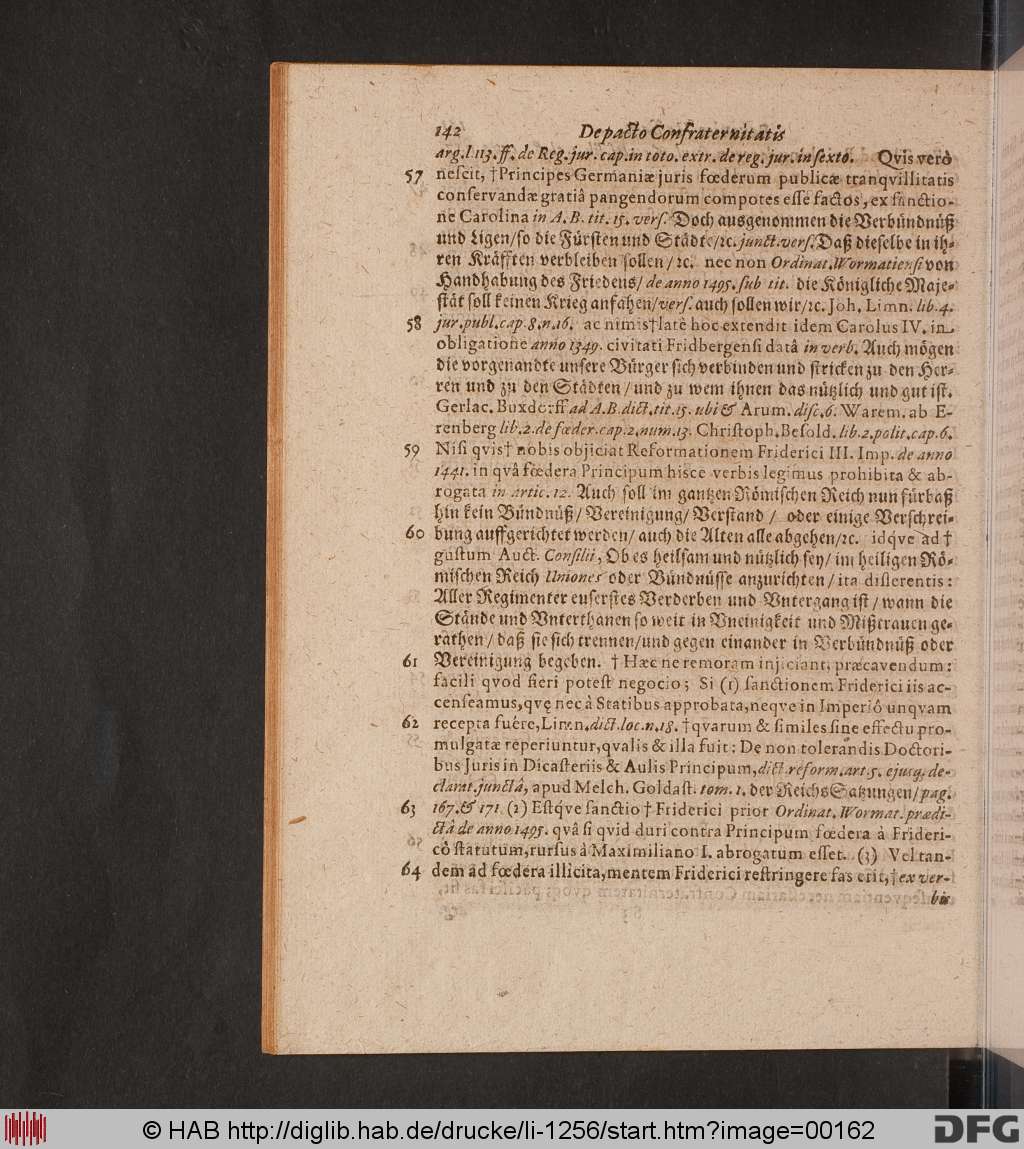 142 De pacto Confraternitatis
arg. l. 113. ff. de Reg. jur. cap. in toto. extr. de reg. jur. in sexto. Qvis verò
57 nescit, †Principes Germaniæ juris fœderum publicæ tranqvillitatis
conservandæ gratiâ pangendorum compotes esse factos, ex sanctio-
ne Carolina in A. B. tit. 15. vers. Doch ausgenommen die Verbündnüß
und Ligen/so die Fürsten und Städte/ꝛc. junct. vers. Daß dieselbe in ih-
ren Kräfften verbleiben sollen/ꝛc. nec non Ordinat. Wormatiensi von
Handhabung des Friedens/ de anno 1495. sub tit. die Königliche Maje-
stät soll keinen Krieg anfahen/vers. auch sollen wir/ꝛc. Joh. Limn. lib. 4.
58 jur. publ. cap. 8. n. 16. ac nimis†latè hoc extendit idem Carolus IV. in
obligatione anno 1349. civitati Fridbergensi datâ in verb. Auch mögen
die vorgenandte unsere Bürger sich verbinden und stricken zu den Her-
ren und zu den Städten/und zu wem ihnen das nützlich und gut ist.
Gerlac. Buxdorff ad A. B. dict. tit. 15. ubi & Arum. disc. 6. Warem. ab E-
renberg lib. 2. de fœder. cap. 2. num. 13. Christoph. Besold. lib. 2. polit. cap. 6.
59 Nisi qvis† nobis objiciat Reformationem Friderici III. Imp. de anno
1441. in qvâ fœdera Principum hisce verbis legimus prohibita & ab-
rogata in artic. 12. Auch soll im gantzen Römischen Reich nun fürbaß
hin kein Bündnüß/ Vereinigung/ Verstand / oder einige Verschrei-
60 bung auffgerichtet werden/ auch die Alten alle abgehen/ꝛc. idqve ad †
gustum Auct. Consilii, Ob es heilsam und nützlich sey/ im heiligen Rö-
mischen Reich Uniones oder Bündnüsse anzurichten/ ita disserentis:
Aller Regimenter euserstes Verderben und Vntergang ist/ wann die
Stände und Vnterthanen so weit in Vneinigkeit und Mißtrauen ge-
rathen/ daß sie sich trennen/und gegen einander in Verbündnüß oder
61 Vereinigung begeben. † Hæc ne remoram injiciant, præcavendum:
facili qvod fieri potest negocio; Si (1) sanctionem Friderici iis ac-
censeamus, qvę nec à Statibus approbata, neqve in Imperiô unqvam
62 recepta fuêre, Limn. dict. loc. n. 18. †qvarum & similes sine effectu pro-
mulgatæ reperiuntur, qvalis & illa fuit: De non tolerandis Doctori-
bus Juris in Dicasteriis & Aulis Principum, dict. reform. art. 5. ejusq; de-
clarat. junctâ, apud Melch. Goldast. tom. 1. der ReichsSatzungen/ pag.
63 167. & 171. (2) Estqve sanctio † Friderici prior Ordinat. Wormat. prædi-
ctâ de anno 1495. qvâ si qvid duri contra Principum fœdera à Frideri-
cô statutum, rursus à Maximiliano I. abrogatum esset. (3) Vel tan-
64 dem ad fœdera illicita, mentem Friderici restringere fas erit, † ex ver-
bis
© HAB http://diglib.hab.de/drucke/li-1256/start.htm?image=00162
DFG